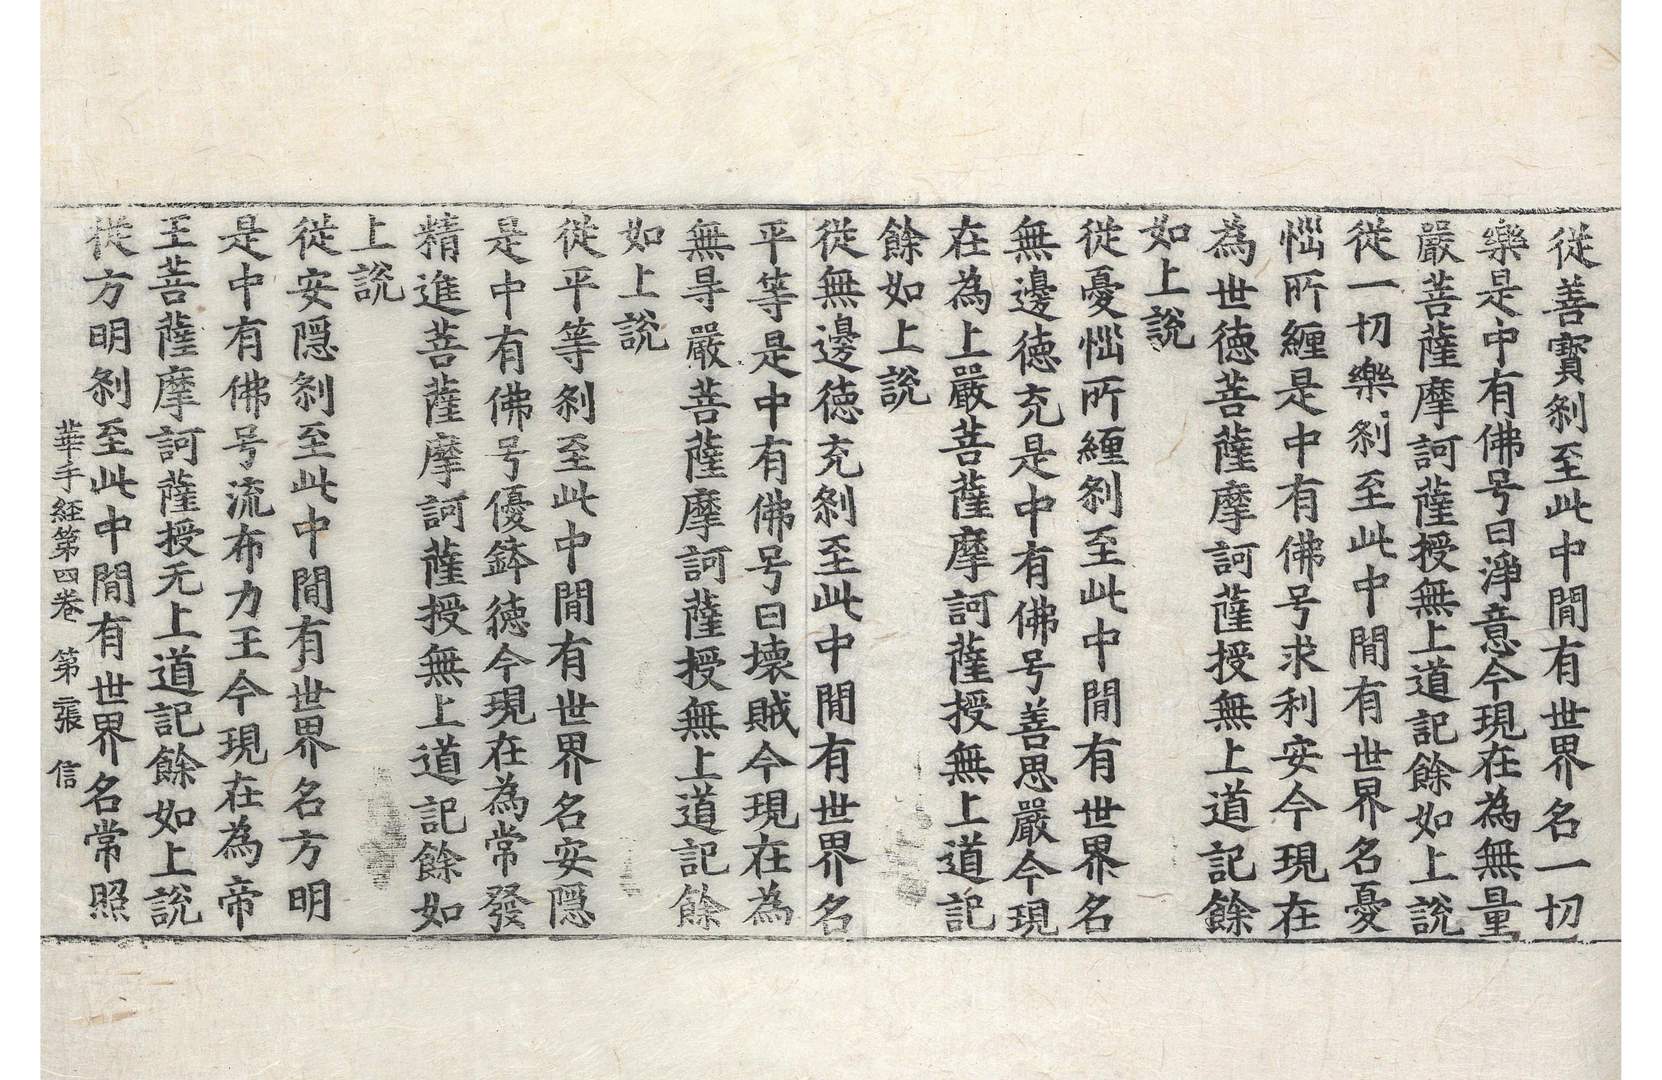 從善寶剎至此中閒有世界名一切
樂是中有佛号曰淨意今現在為無量
嚴菩薩摩訶薩授無上道記餘如上說
從一切樂剎至此中閒有世界名憂
惱所纏是中有佛号求利安今現在
為世德菩薩摩訶薩授無上道記餘
如上說
從憂惱所纏剎至此中閒有世界名
無邊德充是中有佛号善思嚴今現
在為上嚴菩薩摩訶薩授無上道記
餘如上說
從無邊德充剎至此中閒有世界名
平等是中有佛号曰壊賊今現在為
無㝵嚴菩薩摩訶薩授無上道記餘
如上說
從平等剎至此中閒有世界名安隱
是中有佛号優鉢德今現在為常發
精進菩薩摩訶薩授無上道記餘如
上說
從安隱剎至此中閒有世界名方明
是中有佛号流布力王今現在為帝
王菩薩摩訶薩授无上道記餘如上說
從方明剎至此中閒有世界名常照
華手経第四卷 第二張 信